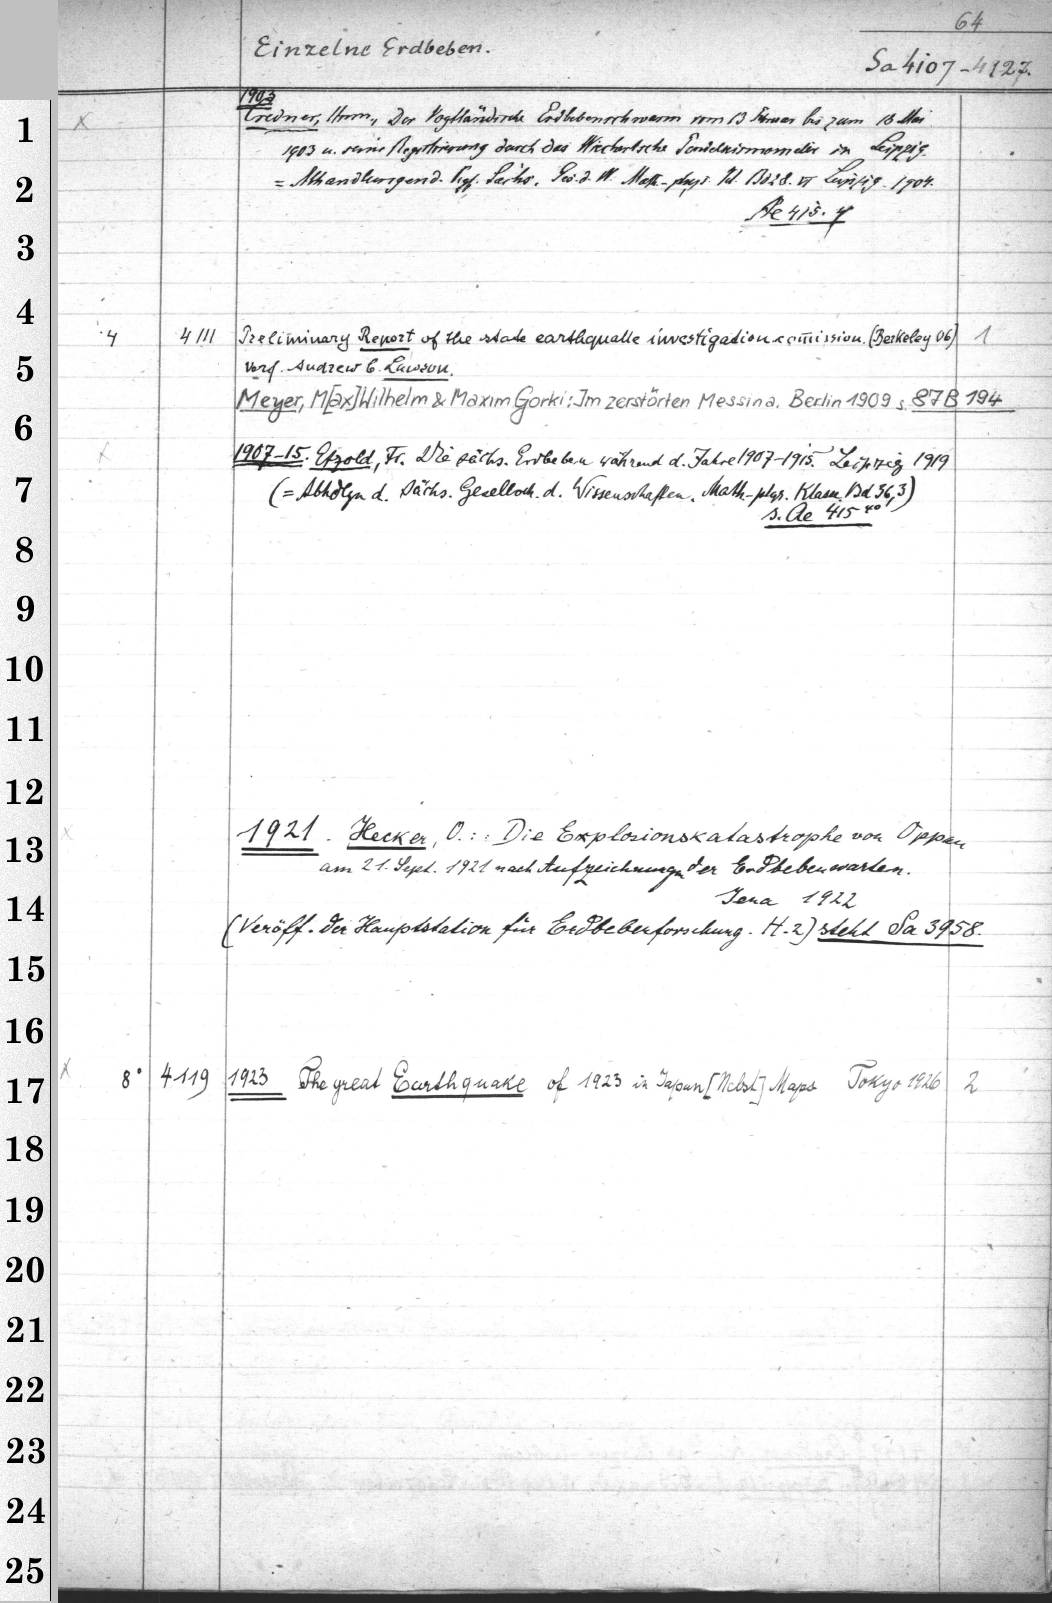 64
Einzelne Erdbeben.
Sa 4107-4127.
1903
Credner, Herm., Der Vogtländische Erdbebenschwarm vom 13 Februar bis zum 18 Mai
1903 u. seine Registrierung durch das Wiechertsche Pendelseismometer in Leipzig.
= Abhandlungen d. Kgl. Sächs. Ges. d. W. Math.-phys. Kl. Bd 28. VI Leipzig. 1904.
Ae 415. 4
4 4111 Preliminary Report of the state earthquake investigation comission. (Berkeley 06) 1
verf. Andrew C. Lawson.
Meyer, M[ax]Wilhelm & Maxim Gorki: Im zerstörten Messina. Berlin 1909 s. 87B 194
x 1907-15. Etzold, Fr. Die sächs. Erdbeben während d. Jahre 1907-1915. Leipzig 1919
(= Abhdlgn d. Sächs. Gesellsch. d. Wissenschaften. Math.-phys. Klasse Bd 36,3)
s. Ae 415 4°
1921. Hecker, O.: Die Explosionskatastrophe von Oppau
am 21. Sept. 1921 nach Aufzeichnungn der Erdbebenwarten.
Jena 1922
(Veröff. der Hauptstation für Erdbebenforschung. H. 2) steht Sa 3958.
x 8° 4119 1923 The great Earthquake of 1923 in Japan [Nebst] Maps Tokyo 1926 2
1
2
3
4
5
6
7
8
9
10
11
12
13
14
15
16
17
18
19
20
21
22
23
24
25